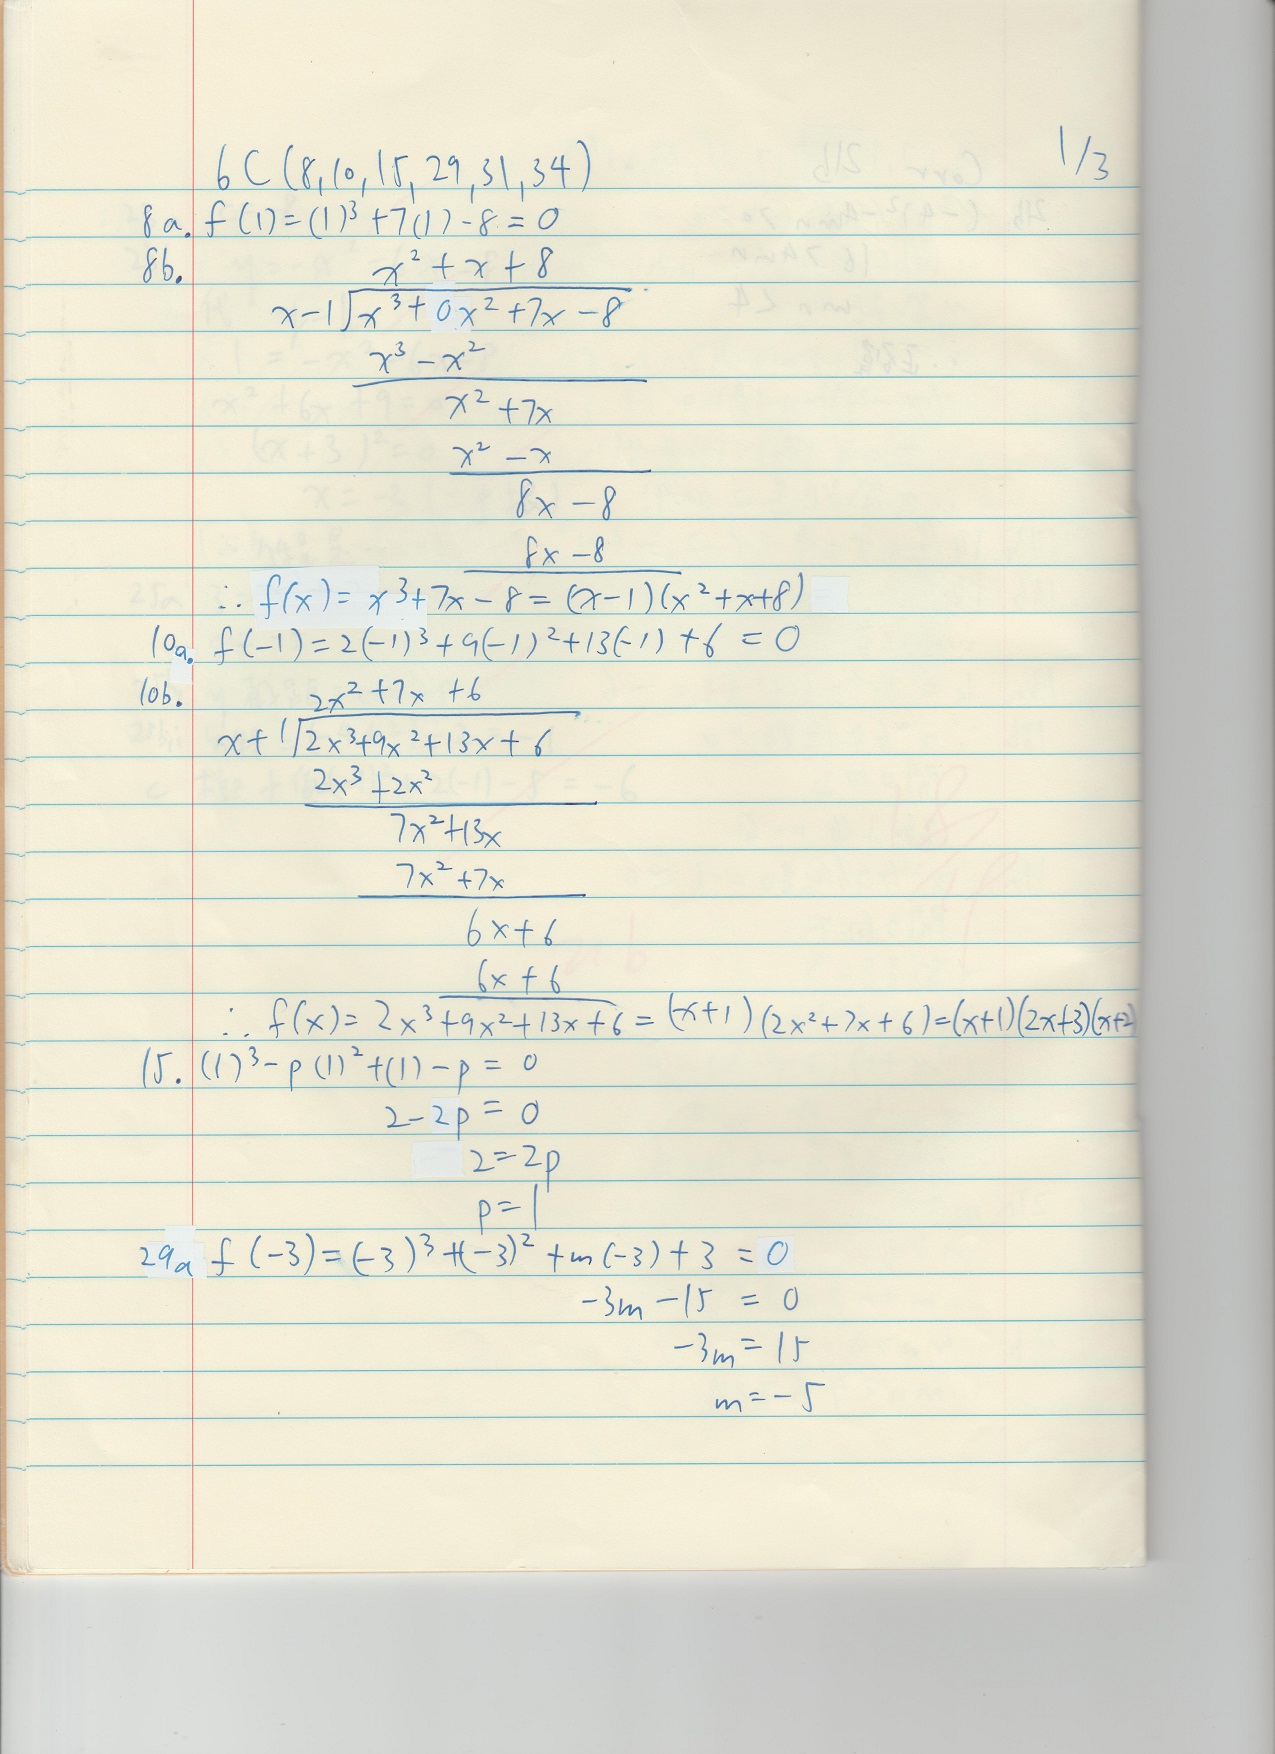 6C (8,10,15,29,31,34)
1/3
8a. f(1)=(1)³+7(1)-8=0
8b. x²+x+8
x-1√x³+0x²+7x-8
x³-x²
x²+7x
x²-x
8x-8
8x-8
∴ f(x)=x³+7x-8=(x-1)(x²+x+8)
10a. f(-1)=2(-1)³+9(-1)²+13(-1)+6=0
10b. 2x²+7x+6
x+1√2x³+9x²+13x+6
2x³+2x²
7x²+13x
7x²+7x
6x+6
6x+6
∴ f(x)=2x³+9x²+13x+6=(x+1)(2x²+7x+6)=(x+1)(2x+3)(x+2)
15. (1)³-p(1)²+(1)-p=0
2-2p=0
2=2p
p=1
29a f(-3)=(-3)³+(-3)²+m(-3)+3=0
-3m-15=0
-3m=15
m=-5